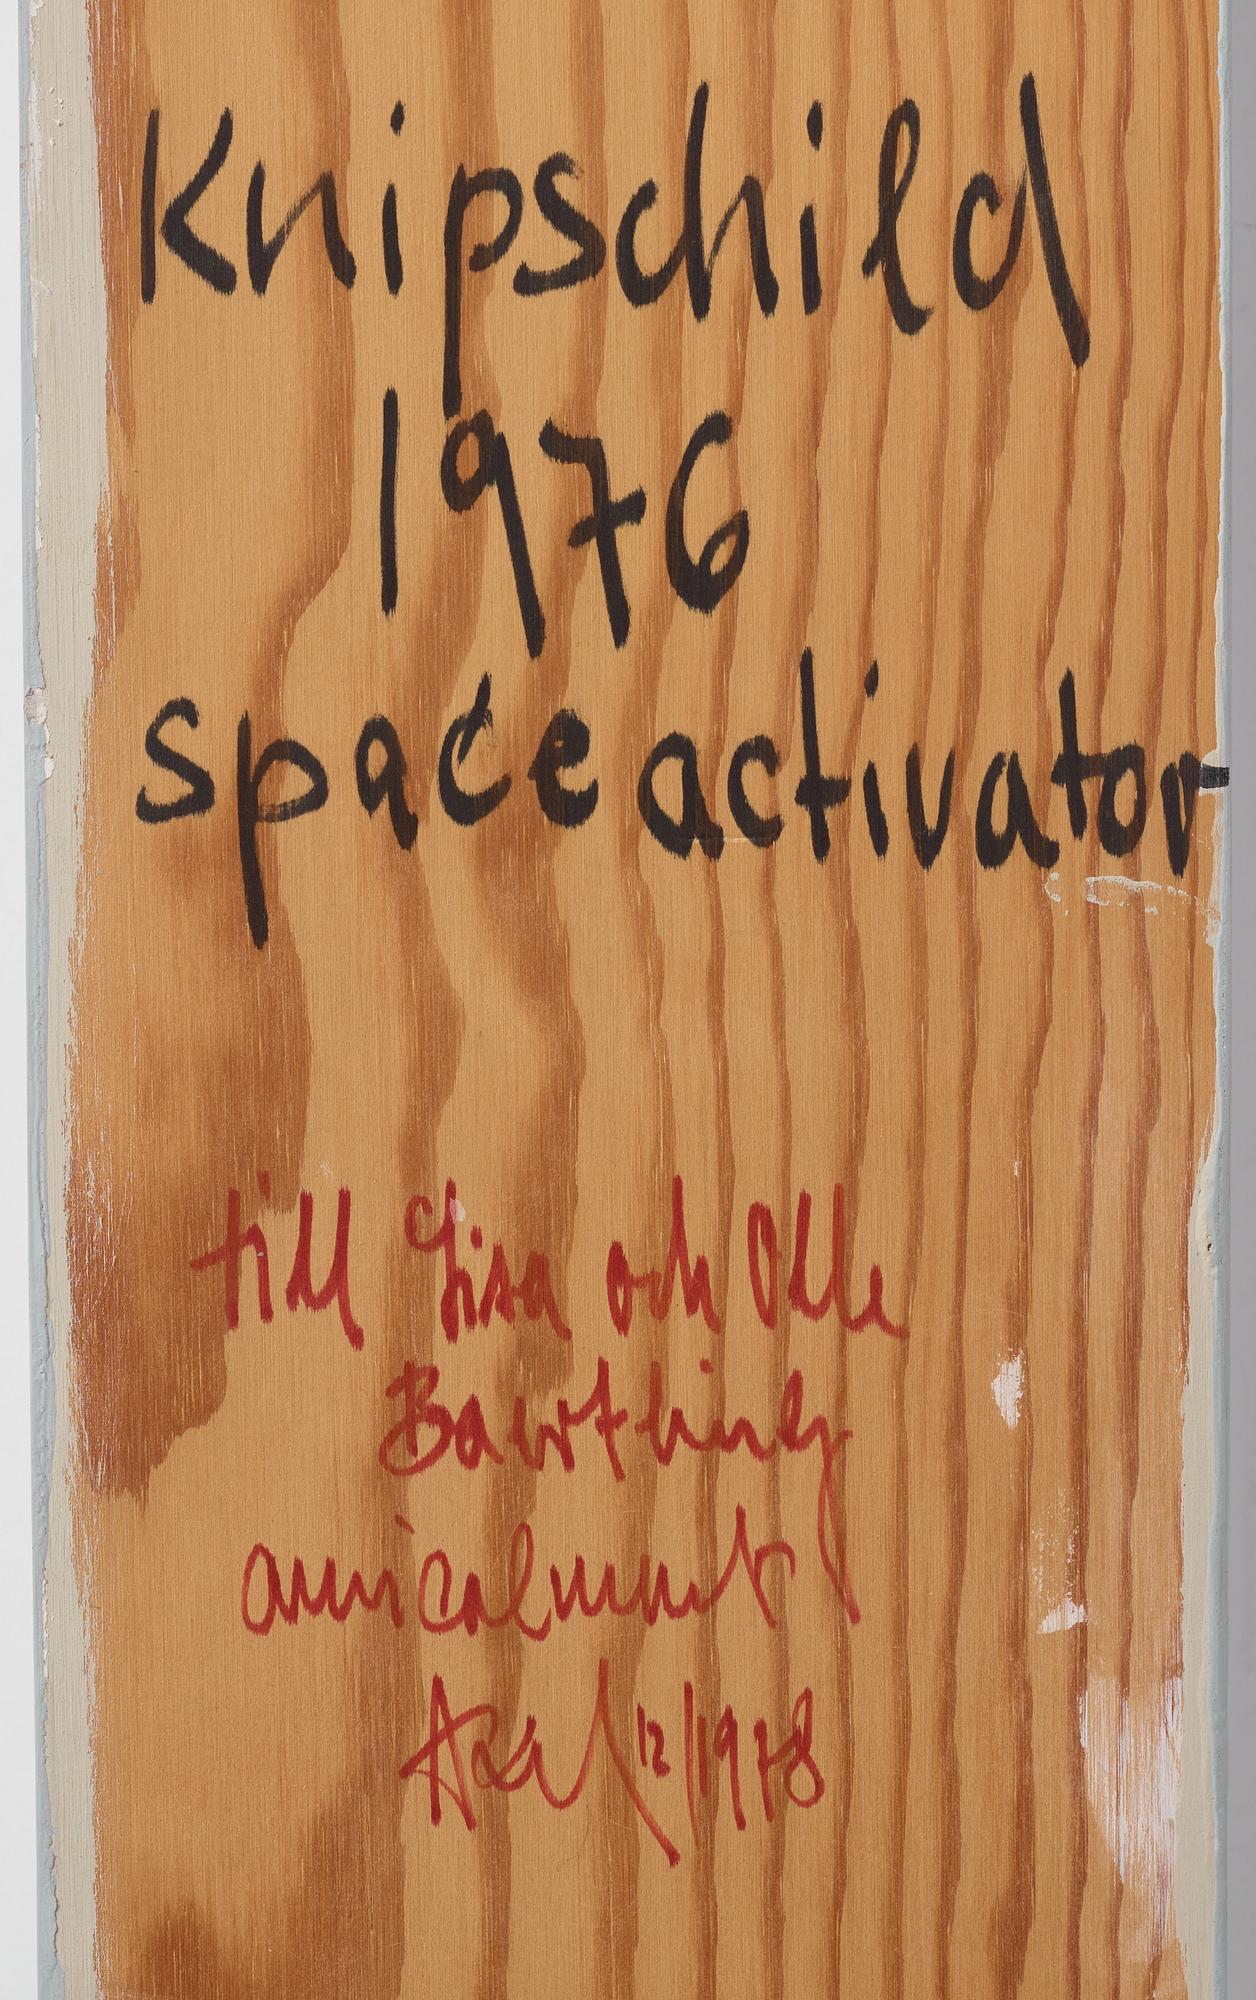 Knipschild
1976
space activator
till Lisa och Olle
Baertling
amicalment
Axel 12/1978